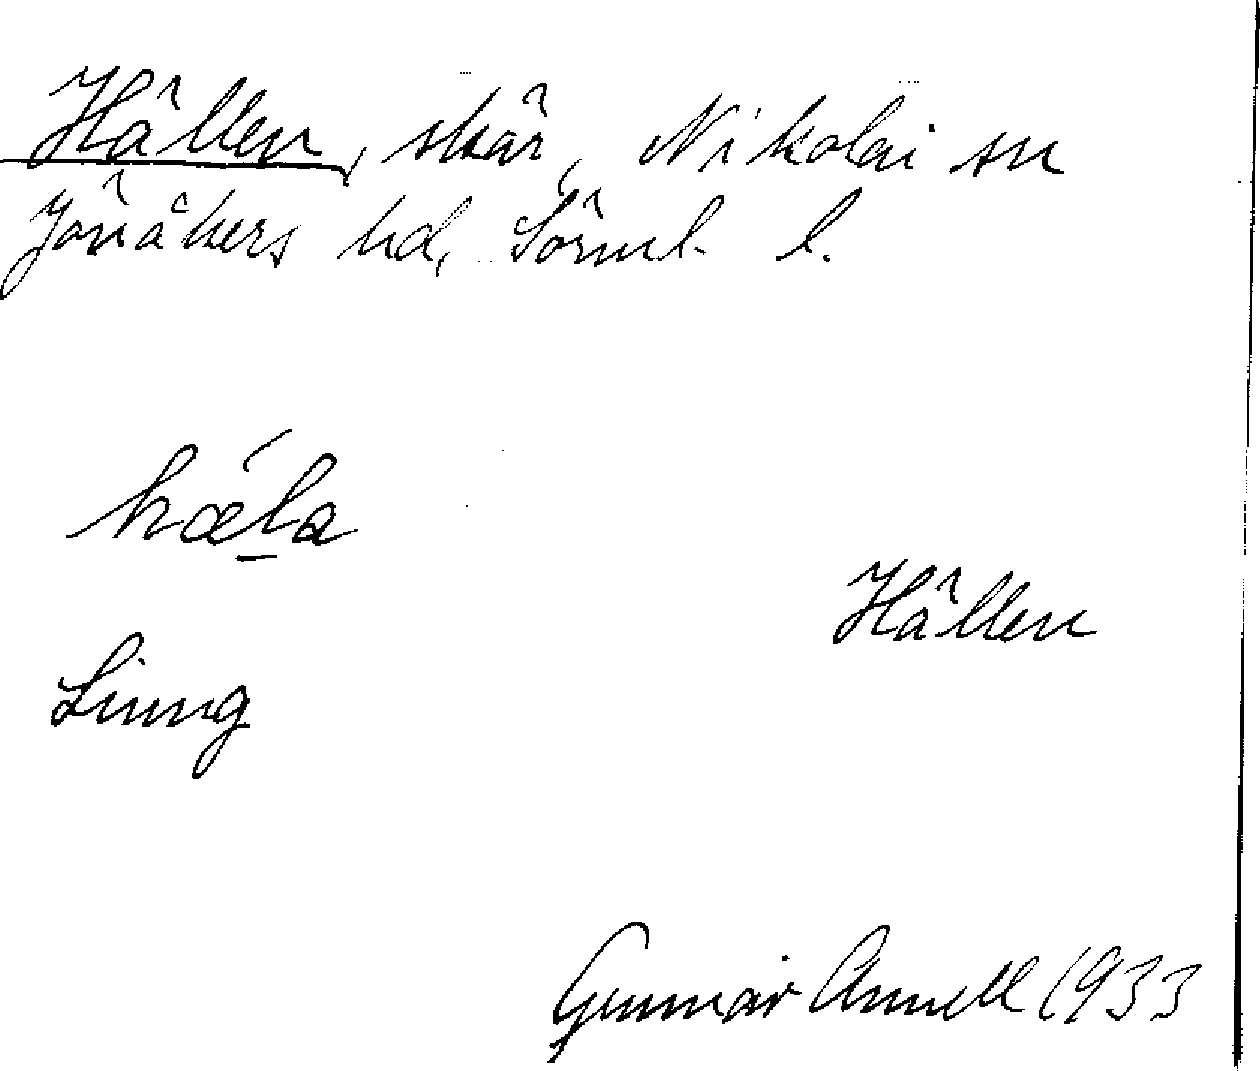 Hällen, skär, Nikolai sn
Jönåkers hd, Sörml. l.
hǽla
Hällen
Linng
Gunnar Annell 1933